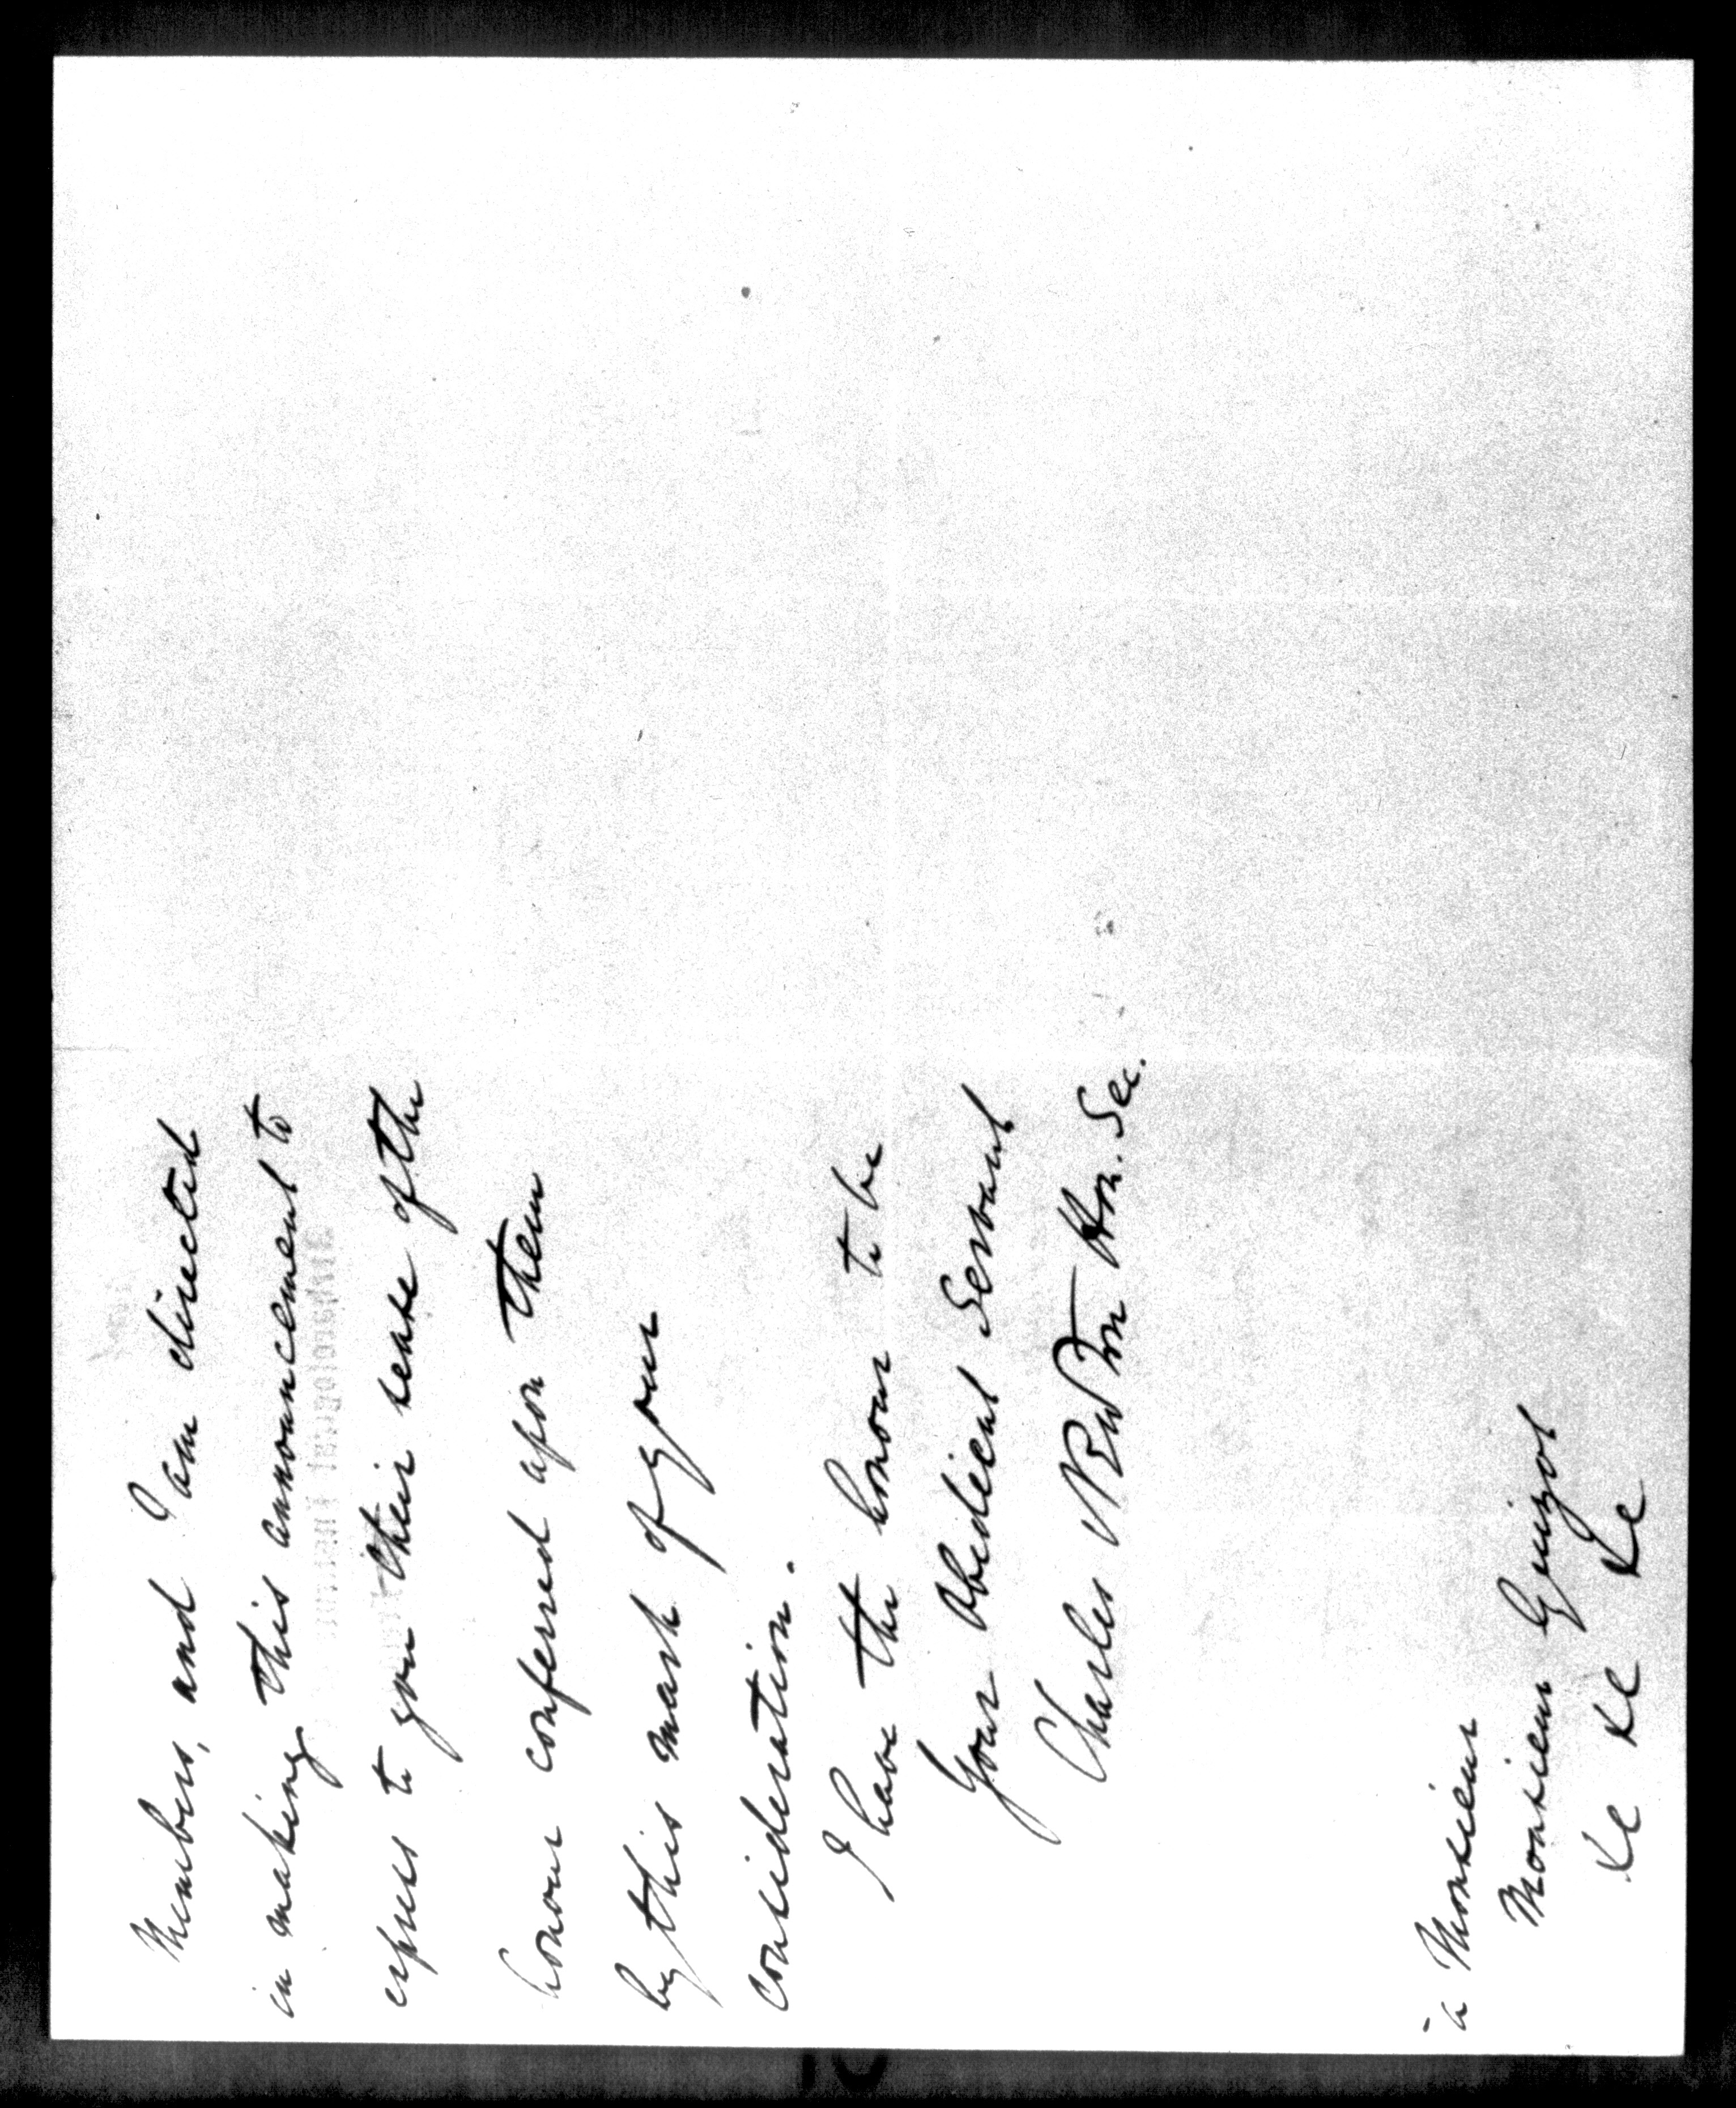 Members, and I am directed
in making this announcement to
express to you their sense of the
honour conferred upon them
by this mark of your
consideration.
I have the honour to be
Your Obedient Servant
Charles Newton Hon. Sec.
à Monsieur
Monsieur Guizot
&c &c &c